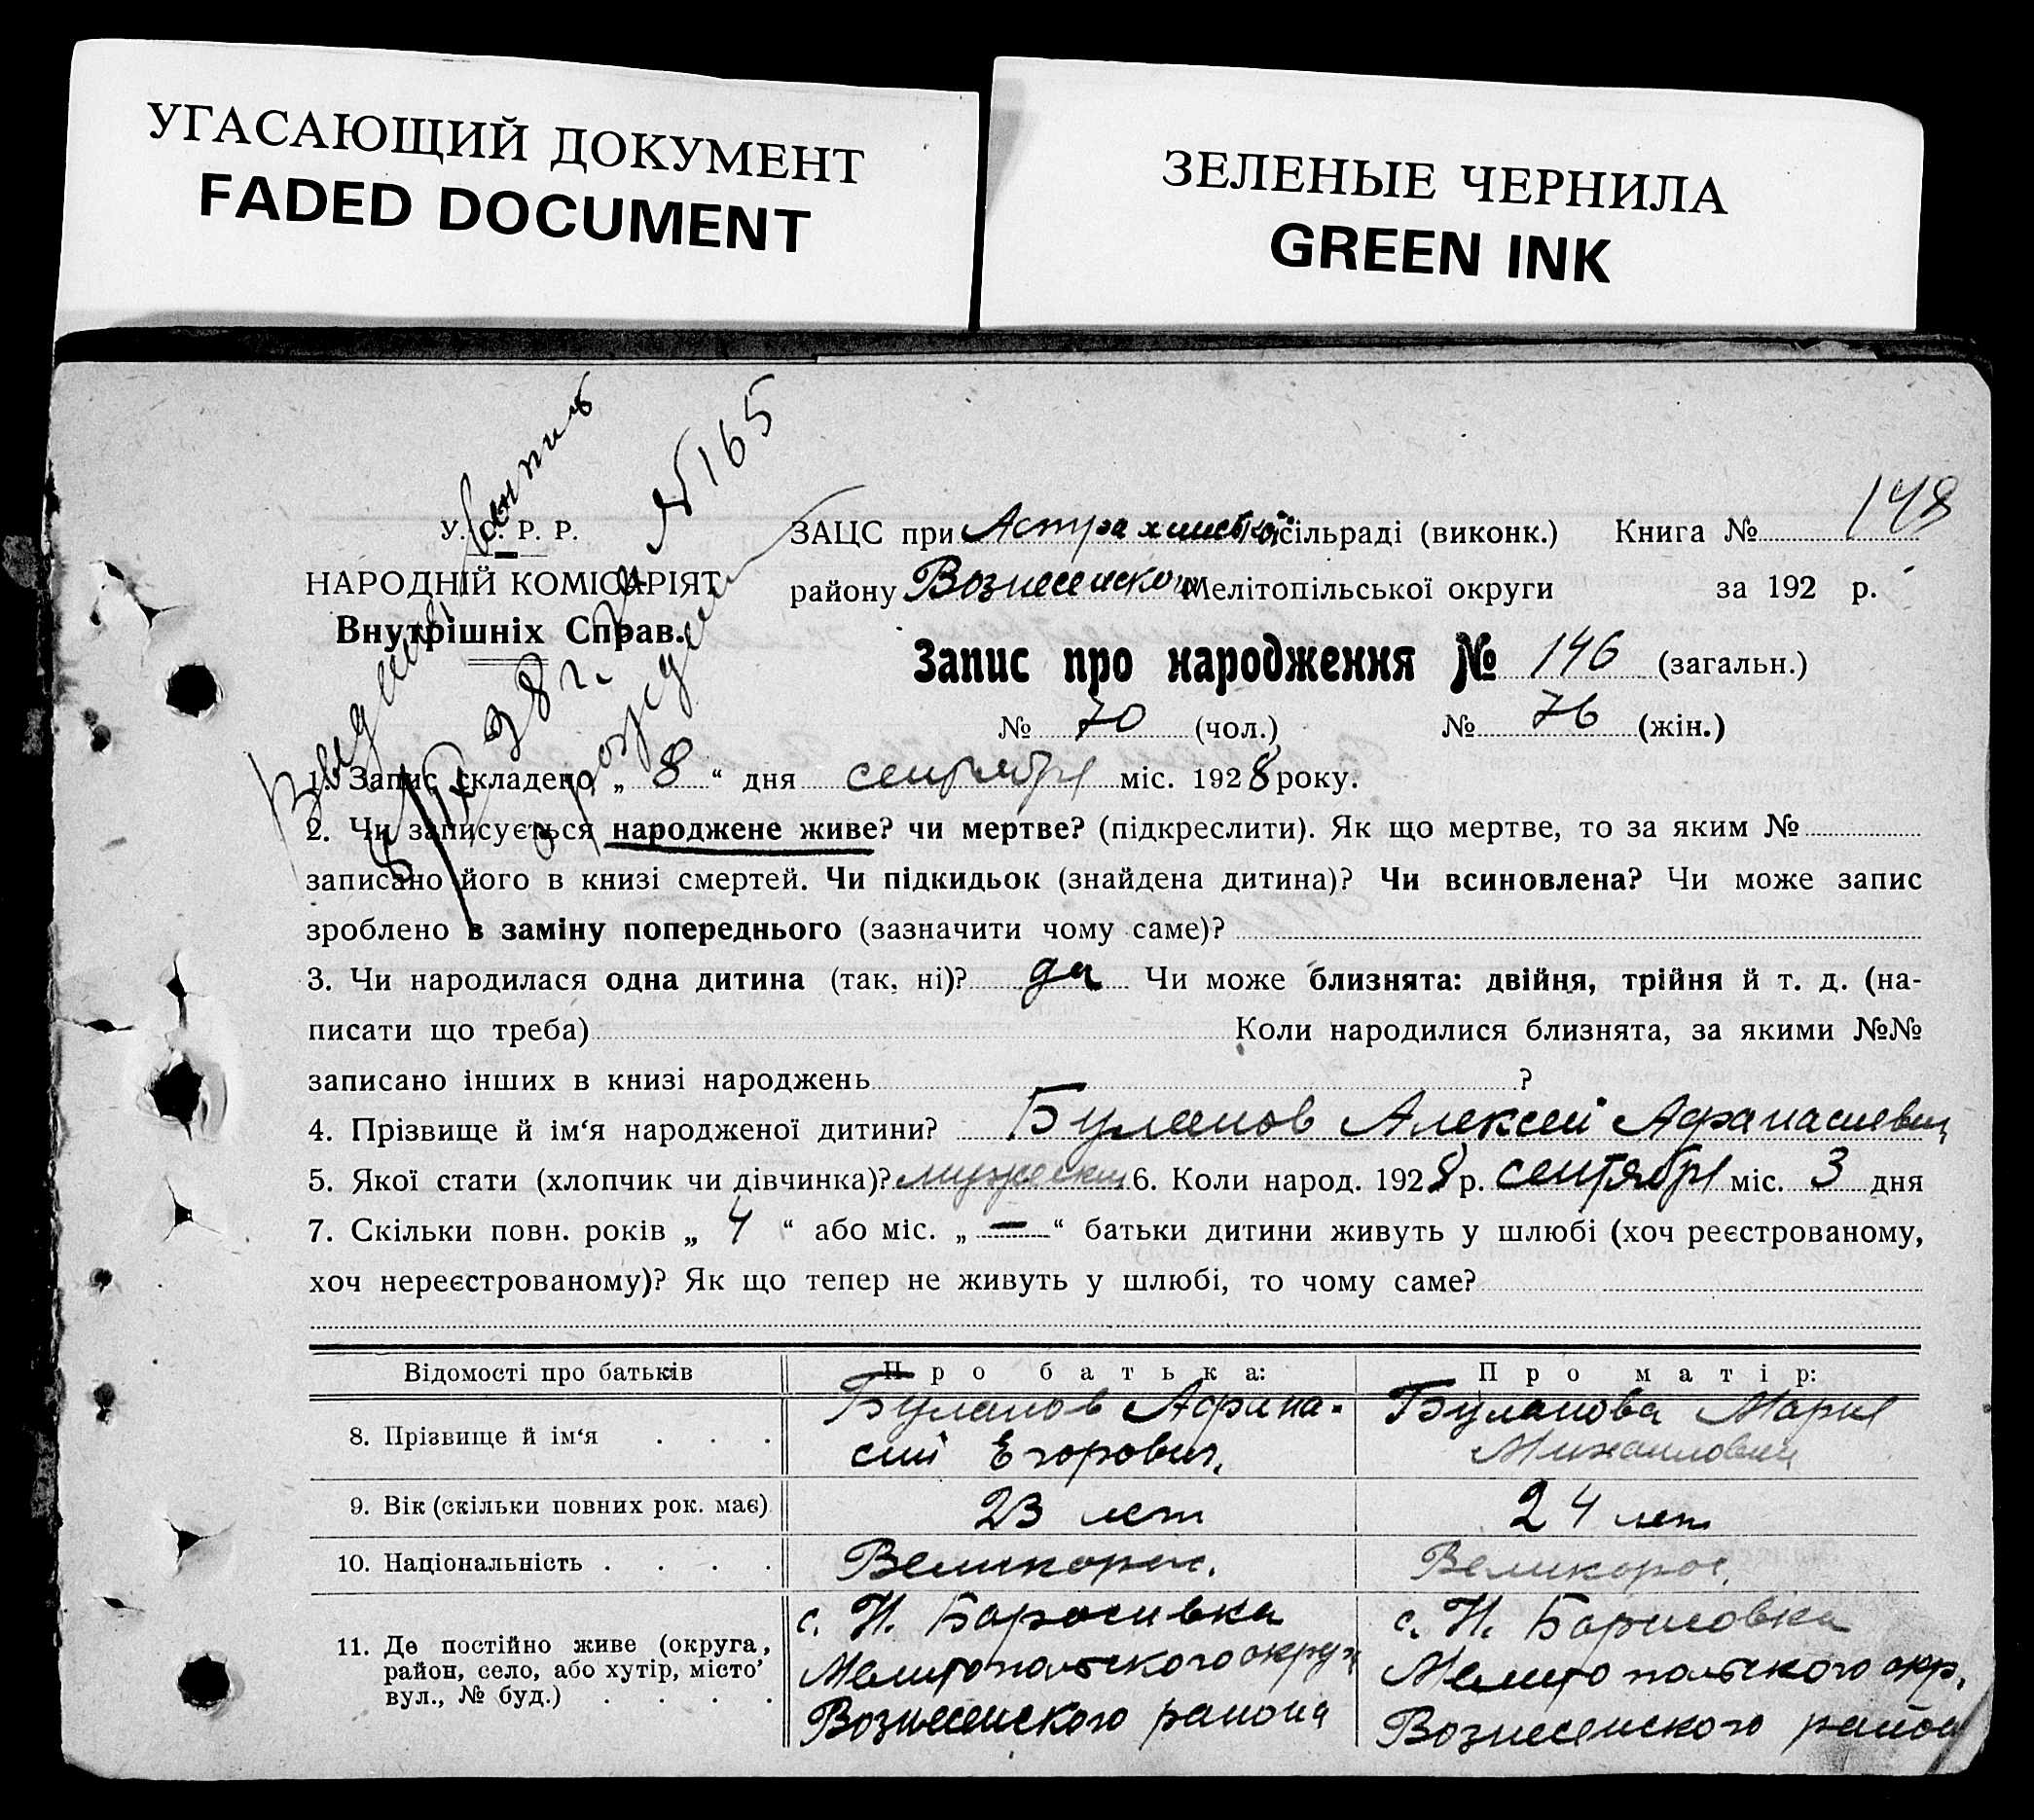 УГАСАЮЩИЙ ДОКУМЕНТ
FADED DOCUMENT
ЗЕЛЕНЫЕ ЧЕРНИЛА
GREEN INK
148
№ 165
У. С. Р. Р.
НАРОДНІЙ КОМІСАРІЯТ
Внутрішніх Справ.
ЗАЦС при Астраханской сільраді (виконк.) Книга №
району Вознесенского Мелітопільської округи за 192 р.
Запис про народження № 146 (загальн.)
№ 70 (чол.) № 76 (жін.)
1. Запис складено „ 8 “ дня сентября міс. 1928 року.
2. Чи записується народжене живе? чи мертве? (підкреслити). Як що мертве, то за яким №
записано його в книзі смертей. Чи підкидьок (знайдена дитина)? Чи всиновлена? Чи може запис
зроблено в заміну попереднього (зазначити чому саме)?
3. Чи народилася одна дитина (так, ні)? да Чи може близнята: двійня, трійня й т. д. (на-
писати що треба) Коли народилися близнята, за якими №№
записано інших в книзі народжень ?
4. Прізвище й ім‘я народженої дитини? Буланов Алексей Афанасиевич
5. Якої стати (хлопчик чи дівчинка)? мужеский 6. Коли народ. 1928 р. сентября міс. 3 дня
7. Скільки повн. років „ 4 “ або міс. „ — “ батьки дитини живуть у шлюбі (хоч реєстрованому,
хоч нереєстрованому)? Як що тепер не живуть у шлюбі, то чому саме?
Відомості про батьків Про батька: Про матір:
8. Прізвище й ім‘я . . .
Буланов Афана-
сий Егорович.
Буланова Мария
Михаиловна
9. Вік (скільки повних рок. має) 23 лет 24 лет
10. Національність . . . . Великорос. Великорос.
11. Де постійно живе (округа,
район, село, або хутір, місто,
вул., № буд.) . . . .
с. Н. Боросивка
Мелитопольского округа
Вознесенского района
с. Н. Борисовка
Мелитопольского окр.
Вознесенского район